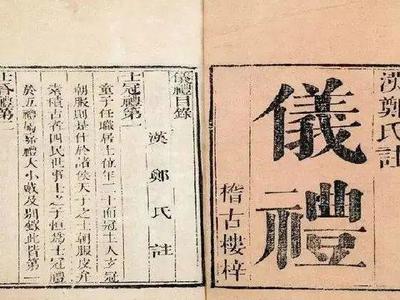 漢鄭氏註
儀禮
稽古樓梓
儀禮目錄
漢鄭氏註
士冠禮第一
童子任職居士位年二十而冠主人玄冠
朝服則是仕於諸侯天子之士朝服皮弁
素積古者四民世事士之子恒為士冠禮
於五禮屬嘉禮大小戴及別錄此皆第一
士昏禮第二